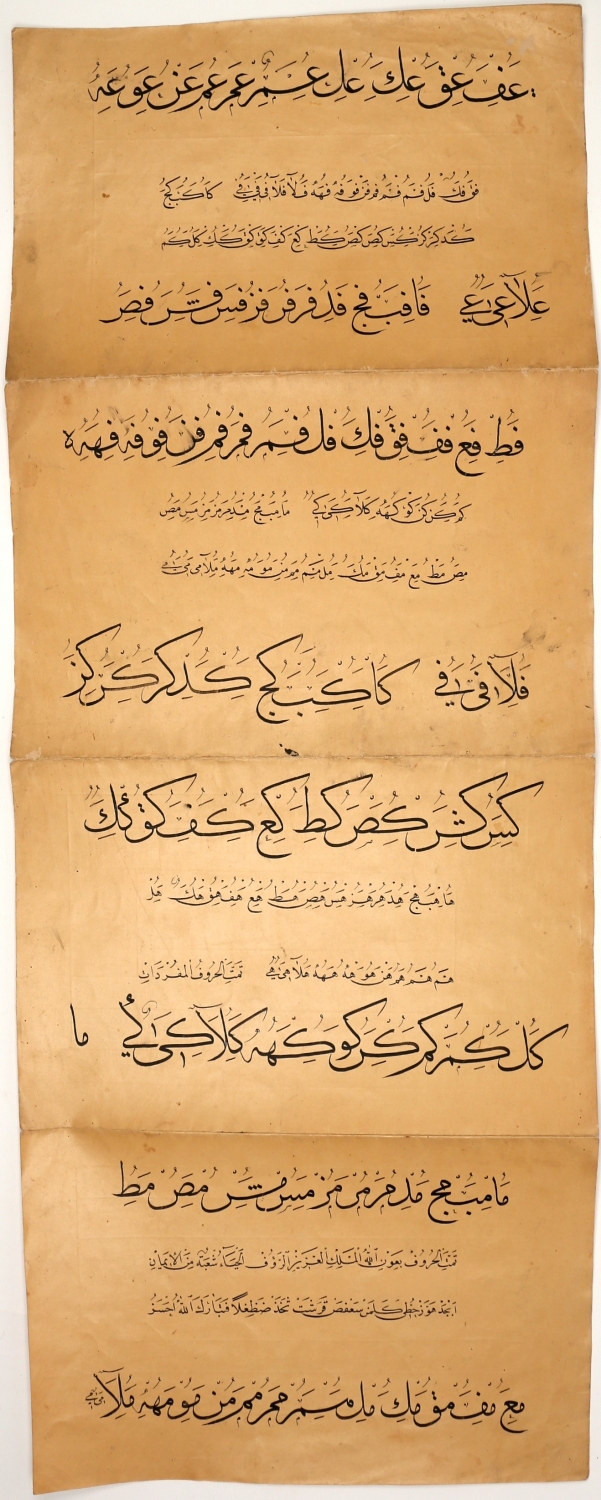 عف عق عك عل عم عم عم عن عو عه
فق فك فل فم فم فم فن فو فه فهه فلا فلا فى فى كا كب كج
كد كر كز كس كص كض كط كع كف كو كق كك كل كم
علا عى عي فا فب فج فد فر فر فز فس فش فص
فط فع فف فق فك فل فم فم فم فن فو فه فهه ه
كم كن كن كو كهه كلا كى كي ما مب مج مد مر مز مر مس مص
مص مط مع مف مق مك مل مم مم من مو مه مهه ملا مى مي
فلا فى في كا كب كج كد كر كر كز
كس كش كص كط كع كف كق كك
ها هب هج هد هر هز هس هص هط هع هف هق هك
هم هم هم هن هو هه ههه هلا هى هي تمت الحروف المفردات
كل كم كم كن كو كهه كلا كى كي ما
ما مب مج مد مر مر مز مس مش مص مط
تمت الحروف بعون الله الملك العزيز الرؤف الحياء شعبة من الايمان
ابجد هوز حطي كلمن سعفص قرشت ثخذ ضظغلا فتبارك الله احسن
مع مف مق مك مل مم مم مم من مو مهه ملا مى مي